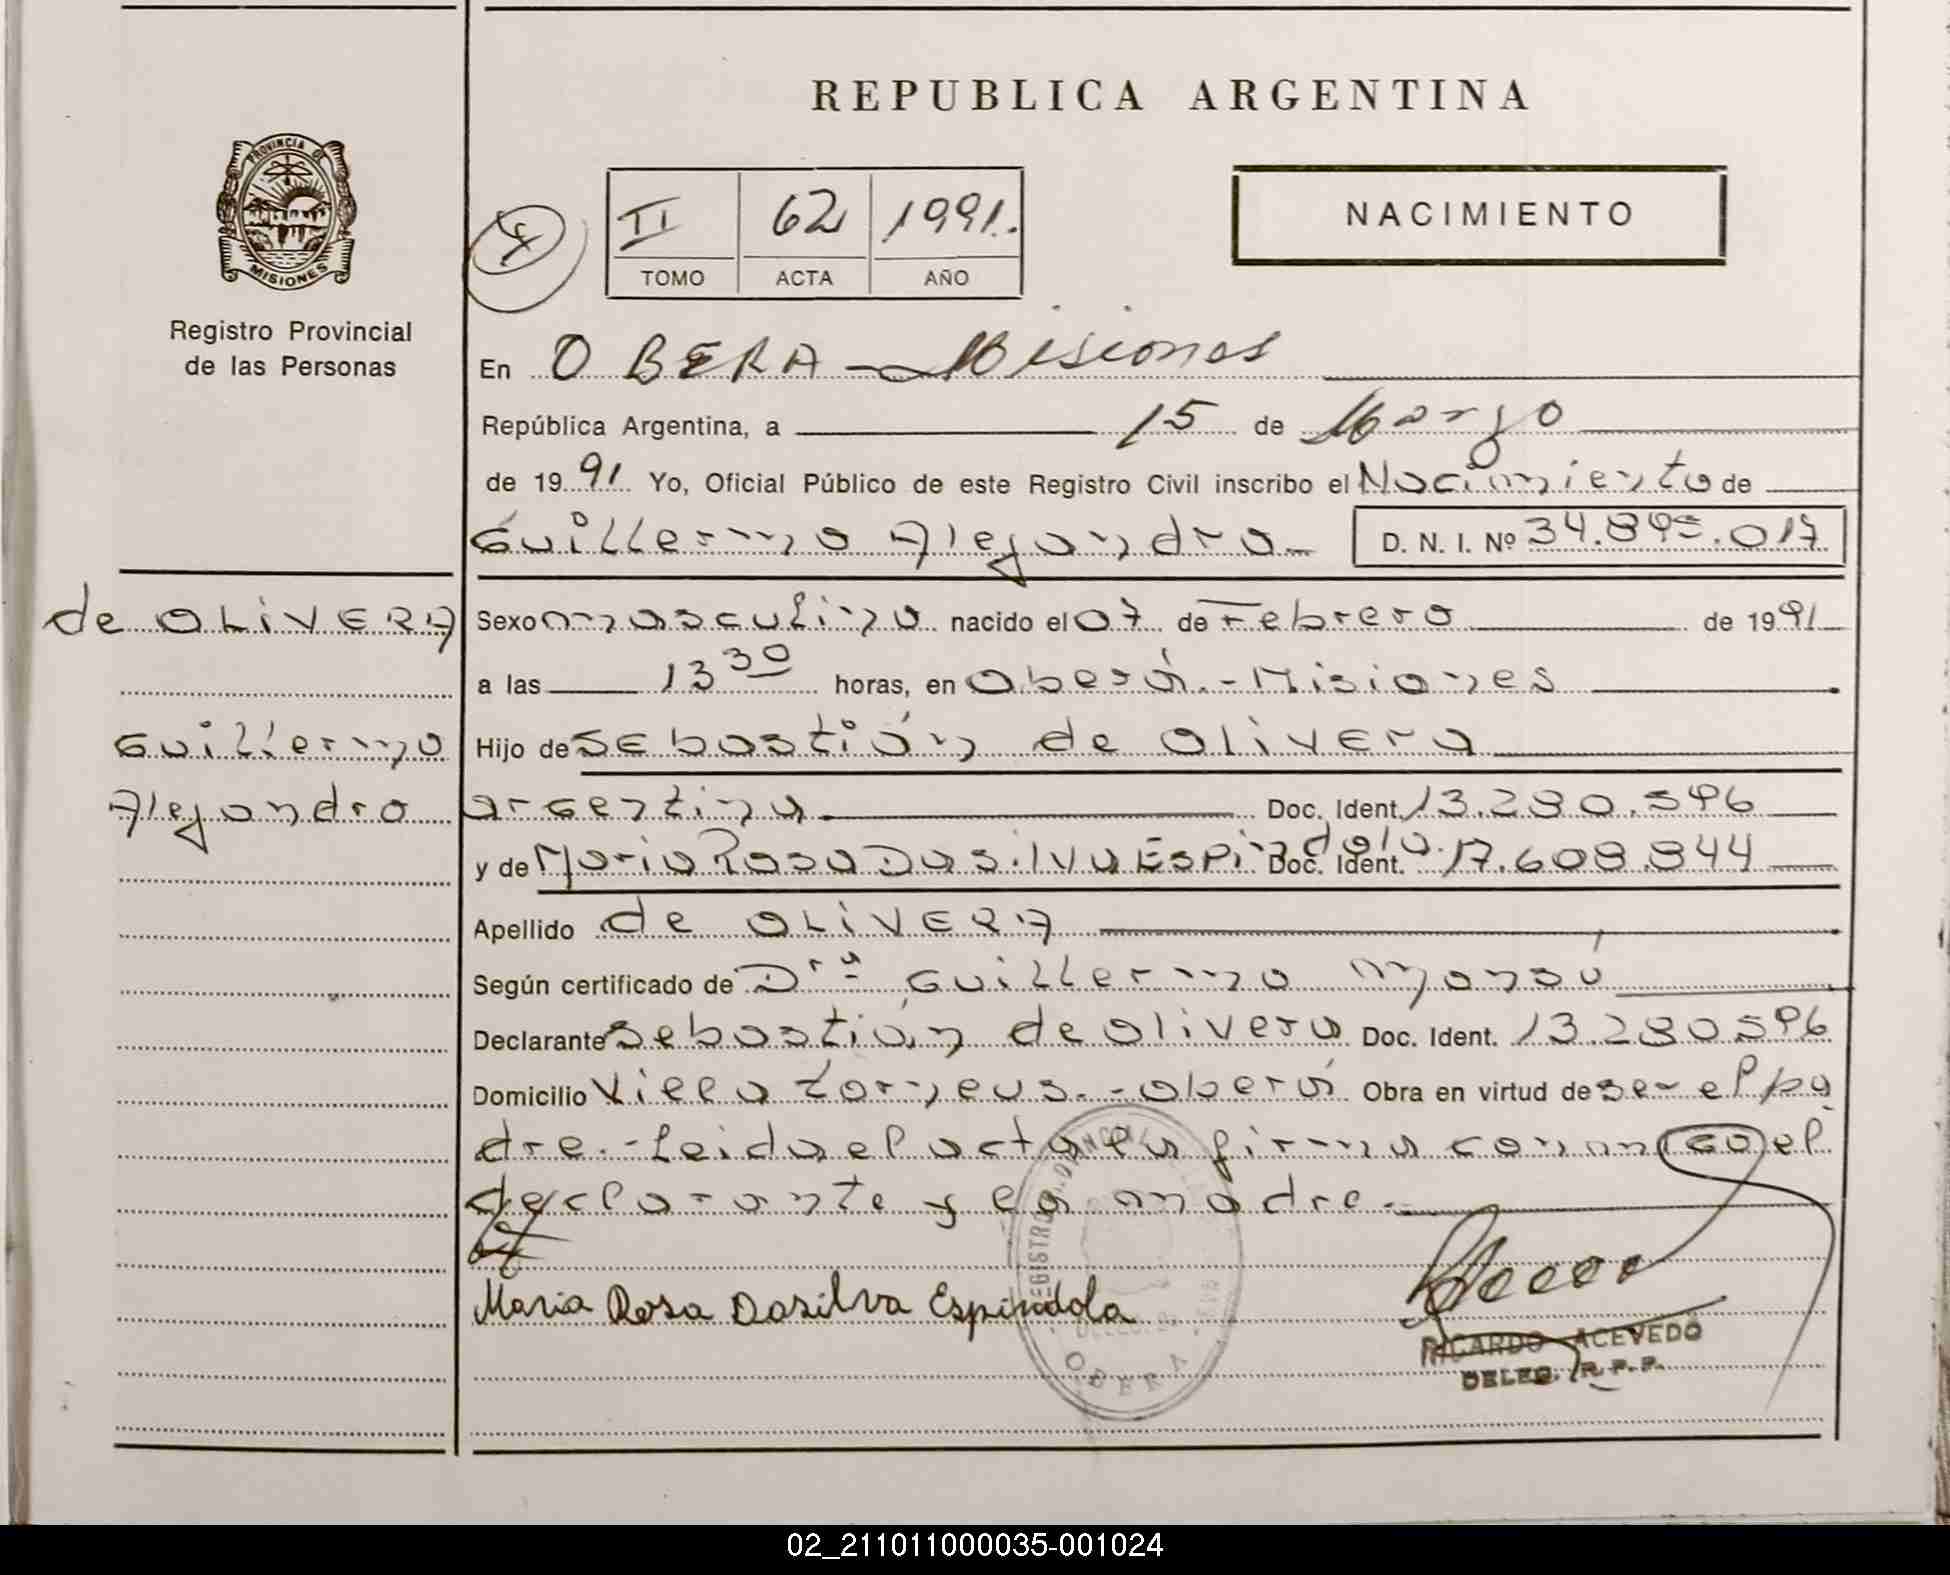 REPUBLICA ARGENTINA
PROVINCIA DE
MISIONES
Registro Provincial
de las Personas
II 62 1991.
TOMO ACTA AÑO
NACIMIENTO
En OBERA - Misiones
República Argentina, a 15 de Marzo
de 1991 Yo, Oficial Público de este Registro Civil inscribo el Nacimiento de
Guillermo Alejandro D. N. I. Nº 34.895.017
de OLIVERA
Guillermo
Alejandro
Sexo masculino nacido el 07 de Febrero de 1991
a las 13 30 horas, en Oberá.- Misiones
Hijo de Sebastián de Olivera
argentina Doc. Ident. 13.280.596
y de Maria Rosa Dasilva Espindola. Doc. Ident. 17.608.844
Apellido de OLIVERA
Según certificado de Dra Guillermo
Declarante Sebastián de Olivera Doc. Ident. 13.280596
Domicilio Villa Torneus.-Oberá Obra en virtud de ser el pa
dre.-Leida el acta la firma conmigo el
declarante y la madre.-
Maria Rosa Dasilva Espindola
OBERA
RICARDO ACEVEDO
DELEG. R.P.P.
02_211011000035-001024